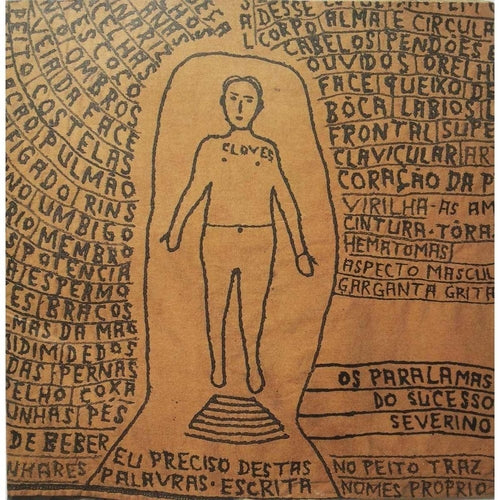 DESSE
CORPO ALMA E CIRCULA
CABELOS PENDÕES
OUVIDOS ORELH
FACE QUEIXO DE
BÔCA LABIOS
FRONTAL SUPE
CLAVICULAR AR
CORAÇÃO DA P
VIRILHA-AS AM
CINTURA-TÔRA
HEMATOMAS
ASPECTO MASCUL
GARGANTA GRITA
NARIZ
PESCOÇO
OMBROS
DA FACE
PEITO COSTELAS
PULMÃO
FIGADO RINS
NO UMBIGO
RIO MEMBRO
POTENCIA
ESPERMO
ES BRAÇOS
MAS DA MAO
DEDOS
DAS PERNAS
ELHO COXA
UNHAS PÉS
DE BEBER
NHARES
CLOVES
EU PRECISO DESTAS
PALAVRAS-ESCRITA
OS PARALAMAS
DO SUCESSO
SEVERINO
NO PEITO TRAZ
NOMES PROPRIO